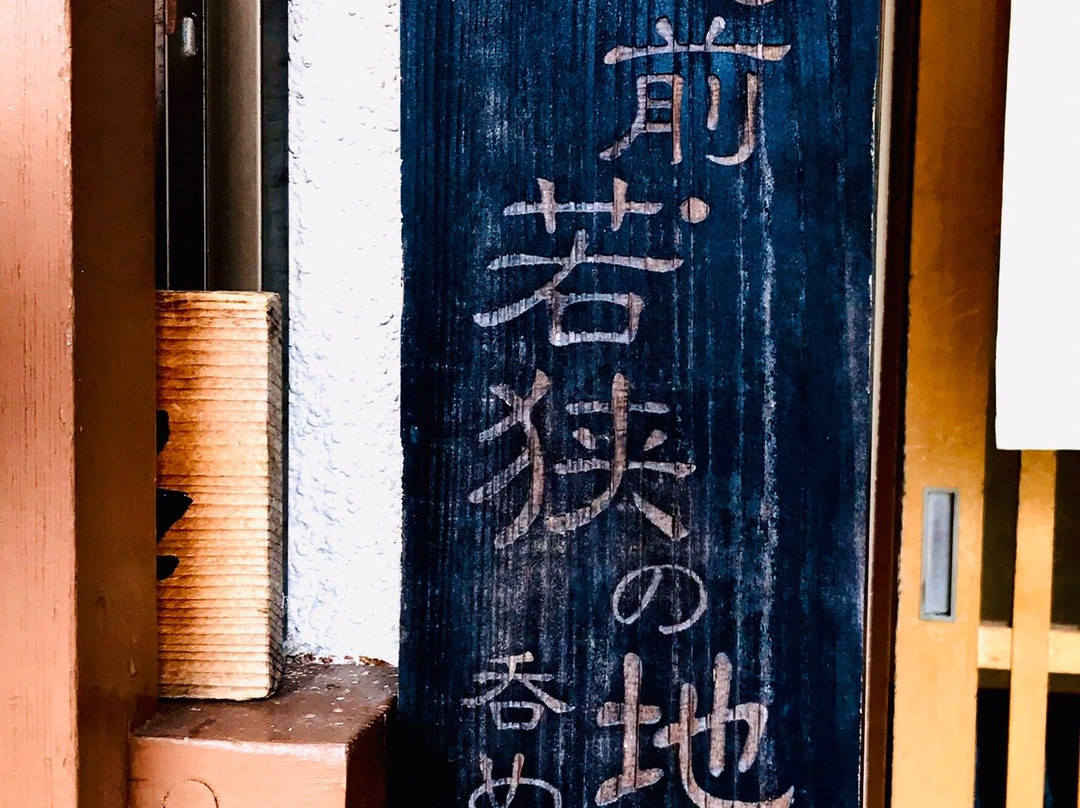 前・若狭の地
呑め